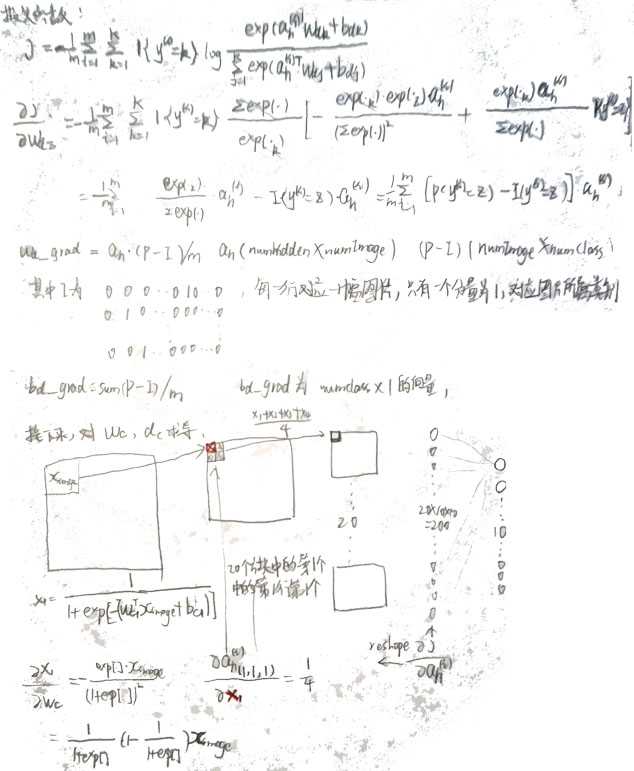 损失函数:
J = -\frac{1}{m} \sum_{i=1}^{m} \sum_{k=1}^{K} 1\{y^{(i)}=k\} \log \frac{\exp(a_h^{(i)T} w_{dk} + b_{dk})}{\sum_{j=1}^{K} \exp(a_h^{(i)T} w_{dj} + b_{dj})}
\frac{\partial J}{\partial w_{dz}} = -\frac{1}{m} \sum_{i=1}^{m} \sum_{k=1}^{K} 1\{y^{(i)}=k\} \frac{\sum \exp(\cdot)}{\exp(\cdot_k)} [ -\frac{\exp(\cdot_k) \cdot \exp(\cdot_z) a_h^{(i)}}{(\sum \exp(\cdot))^2} + \frac{\exp(\cdot_k) a_h^{(i)}}{\sum \exp(\cdot)}
= \frac{1}{m} \sum_{i=1}^{m} \frac{\exp(\cdot_z)}{\sum \exp(\cdot)} a_h^{(i)} - I(y^{(i)}=z) \cdot a_h^{(i)} = \frac{1}{m} \sum_{i=1}^{m} [p(y^{(i)}=z) - I(y^{(i)}=z)] \cdot a_h^{(i)},
wd_grad = a_h·(P-I)/m a_h(numhidden×numImage) (P-I)(numImage×numclass)
其中I为 0 0 0 ··· 0 1 0 0 , 每一行对应一幅图片,只有一个分量为1,对应图片所属类别
0 1 0 ··· 0 0 0 ··· 0
0 0 1 ··· 0 0 0 ··· 0
bd_grad = sum(P-I)/m bd_grad为 numclass×1 的向量,
接下来,对 wc, dc 求导,
\frac{x_1+x_2+x_3+x_4}{4}
x_{image}
20
20×10×10
=200
10
x_1 = \frac{1}{1+\exp[-(w_{c1}^T x_{image} + b_{c1})]}
20个块中的第1个
中的第1行第1个
reshape \frac{\partial J}{\partial a_h^{(i)}}
\frac{\partial x_1}{\partial w_c} = \frac{\exp[] \cdot x_{image}}{(1+\exp[])^2} \frac{\partial a_h^{(i)}(1,1,1)}{\partial x_1} = \frac{1}{4}
= \frac{1}{1+\exp[]} (1-\frac{1}{1+\exp[]}) x_{image}